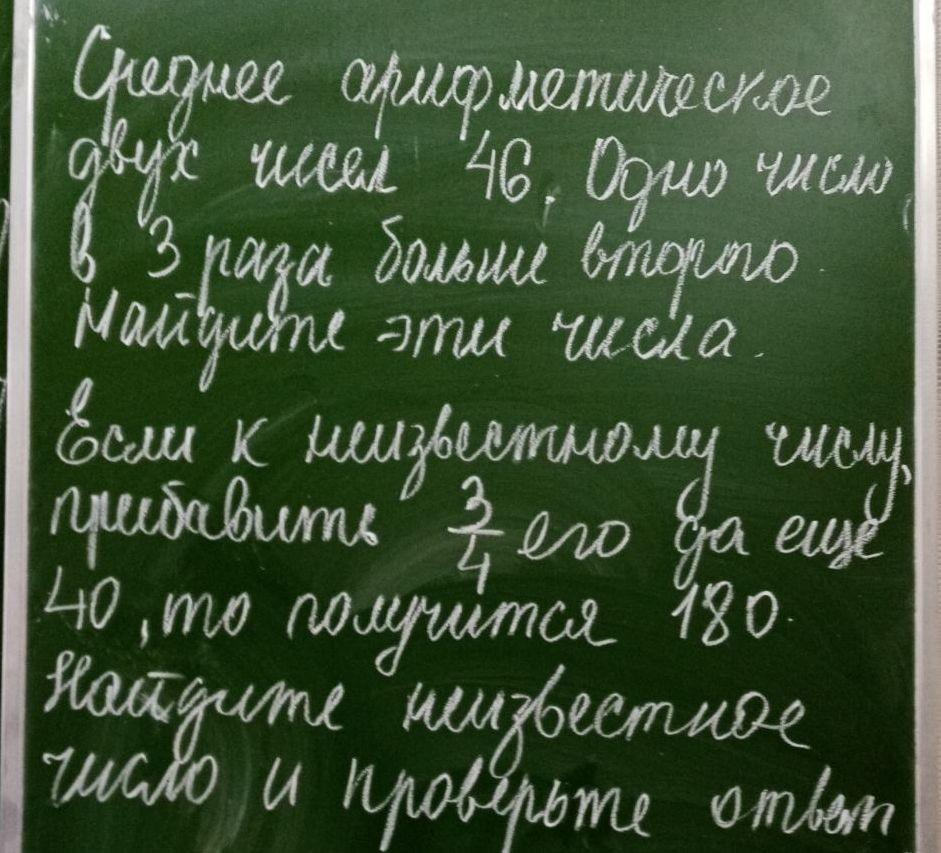 Среднее арифметическое
двух чисел 46. Одно число
в 3 раза больше второго
Найдите эти числа.
Если к неизвестному числу,
прибавить 3/4 его да еще
40, то получится 180.
Найдите неизвестное
число и проверьте ответ